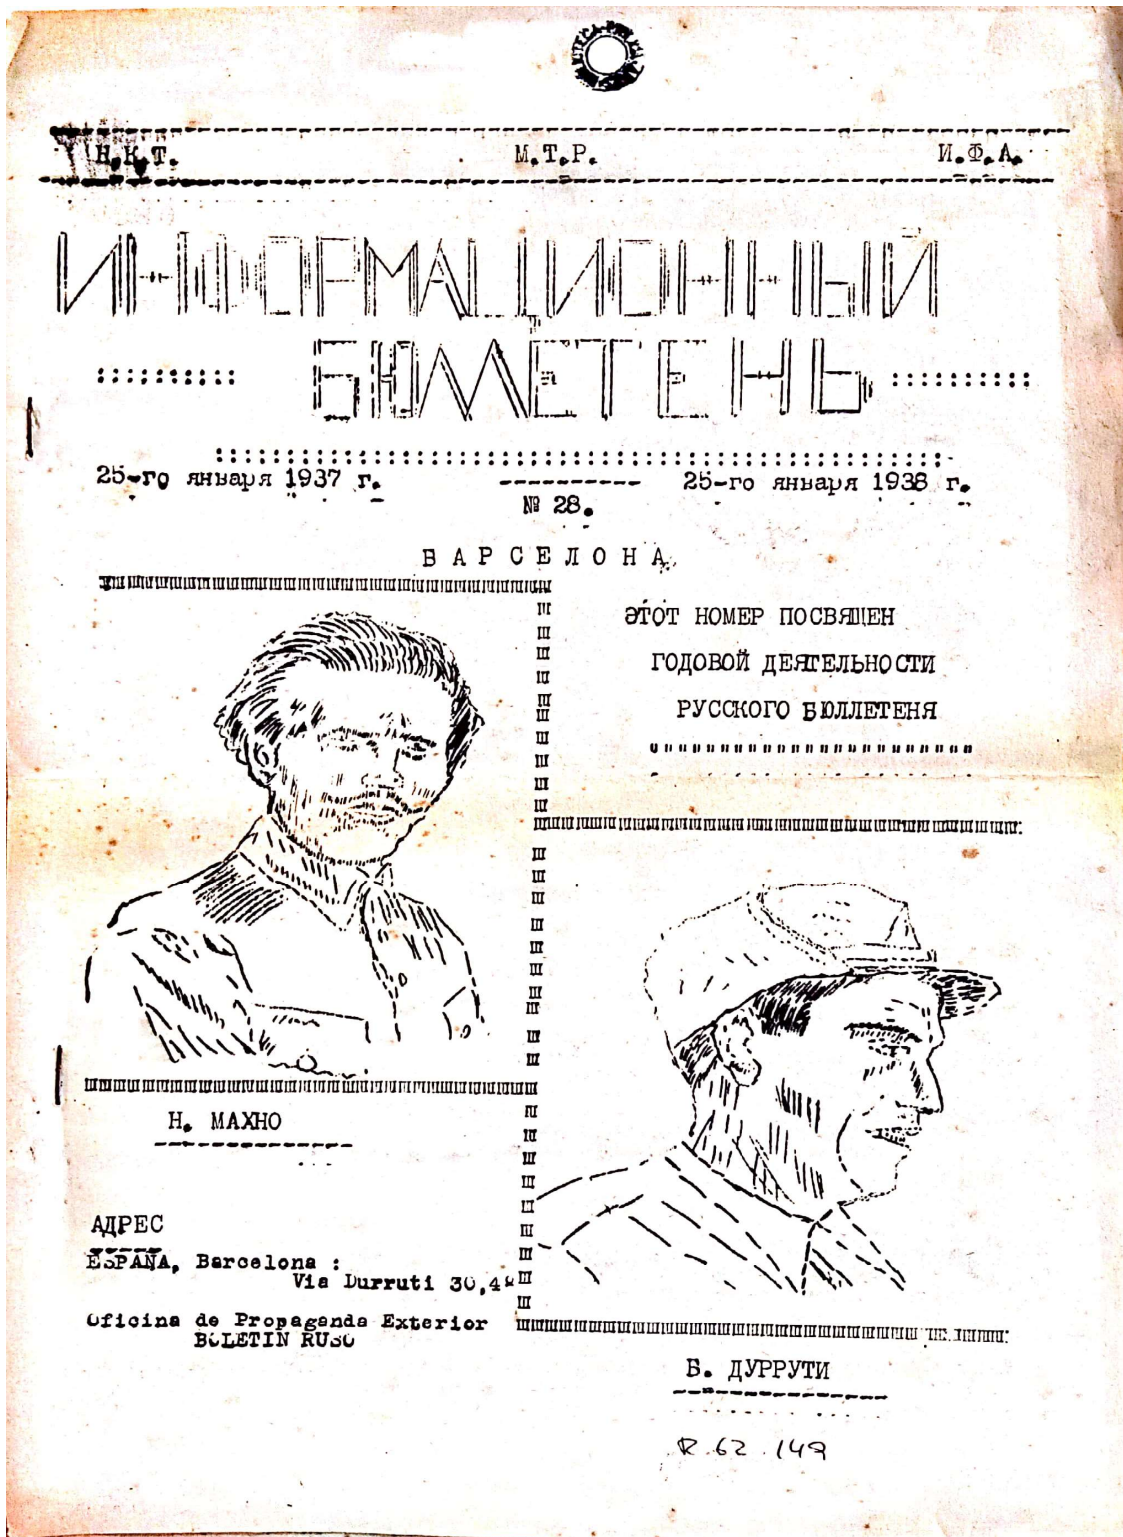 Н.К.Т. М.Т.Р. И.Ф.А.
ИНФОРМАЦИОННЫЙ
БЮЛЛЕТЕНЬ
25-го января 1937 г. 25-го января 1938 г.
№ 28.
БАРСЕЛОНА
ЭТОТ НОМЕР ПОСВЯЩЕН
ГОДОВОЙ ДЕЯТЕЛЬНОСТИ
РУССКОГО БЮЛЛЕТЕНЯ
Н. МАХНО
АДРЕС
ESPAÑA, Barcelona :
Via Durruti 30,4º
Oficina de Propaganda Exterior
BOLETIN RUSO
Б. ДУРРУТИ
R.62.149